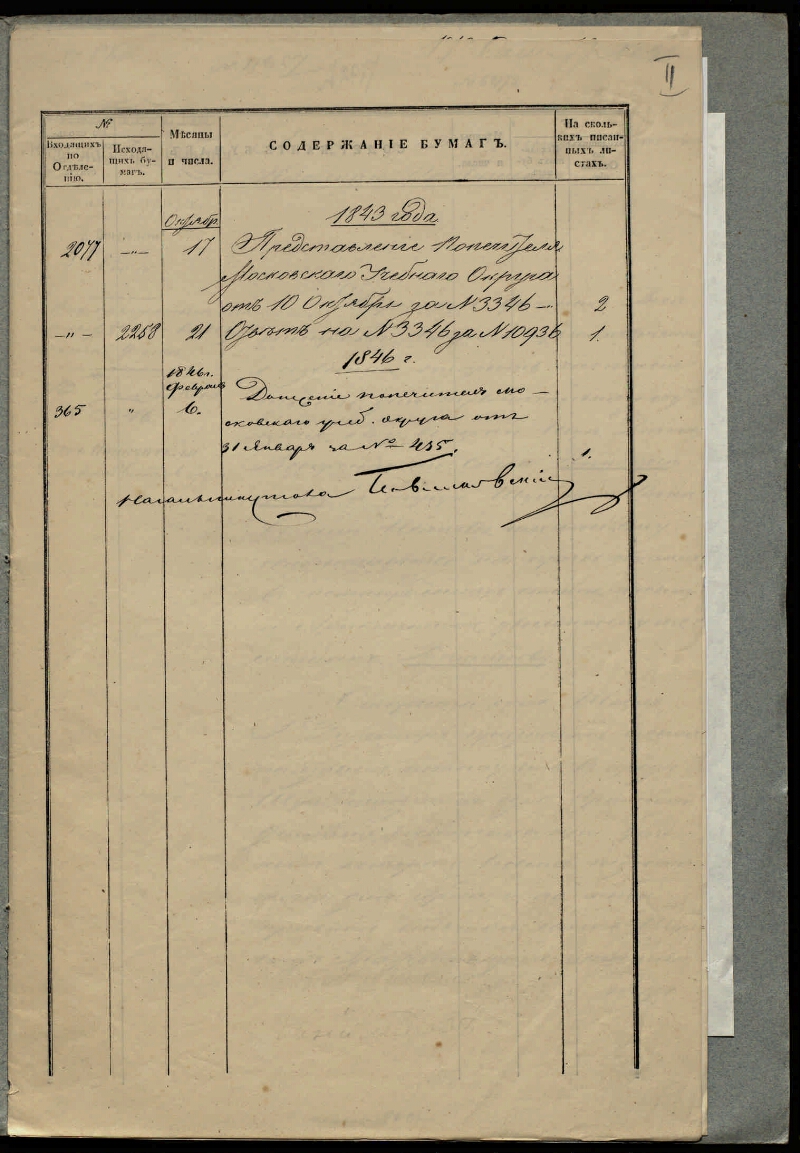 II
№
Входящихъ по Отдѣленію.
Исходящихъ бумагъ.
Мѣсяцы и числа.
СОДЕРЖАНІЕ БУМАГЪ.
На сколькихъ писанныхъ листахъ.
Октябр.
1843 года
2077 —„— 17 Представленіе Попечителя
Московскаго Учебнаго Округа
отъ 10 Октября за N 3346 — 2
—„— 2258 21 Отвѣтъ на N 3346 за N 10936 1.
1846 г.
1846 г.
Февраль
365 „ 6. Донесеніе попечителя мо-
сковскаго учеб. округа отъ
31 Января за № 435. 1.
Начальникъ стола